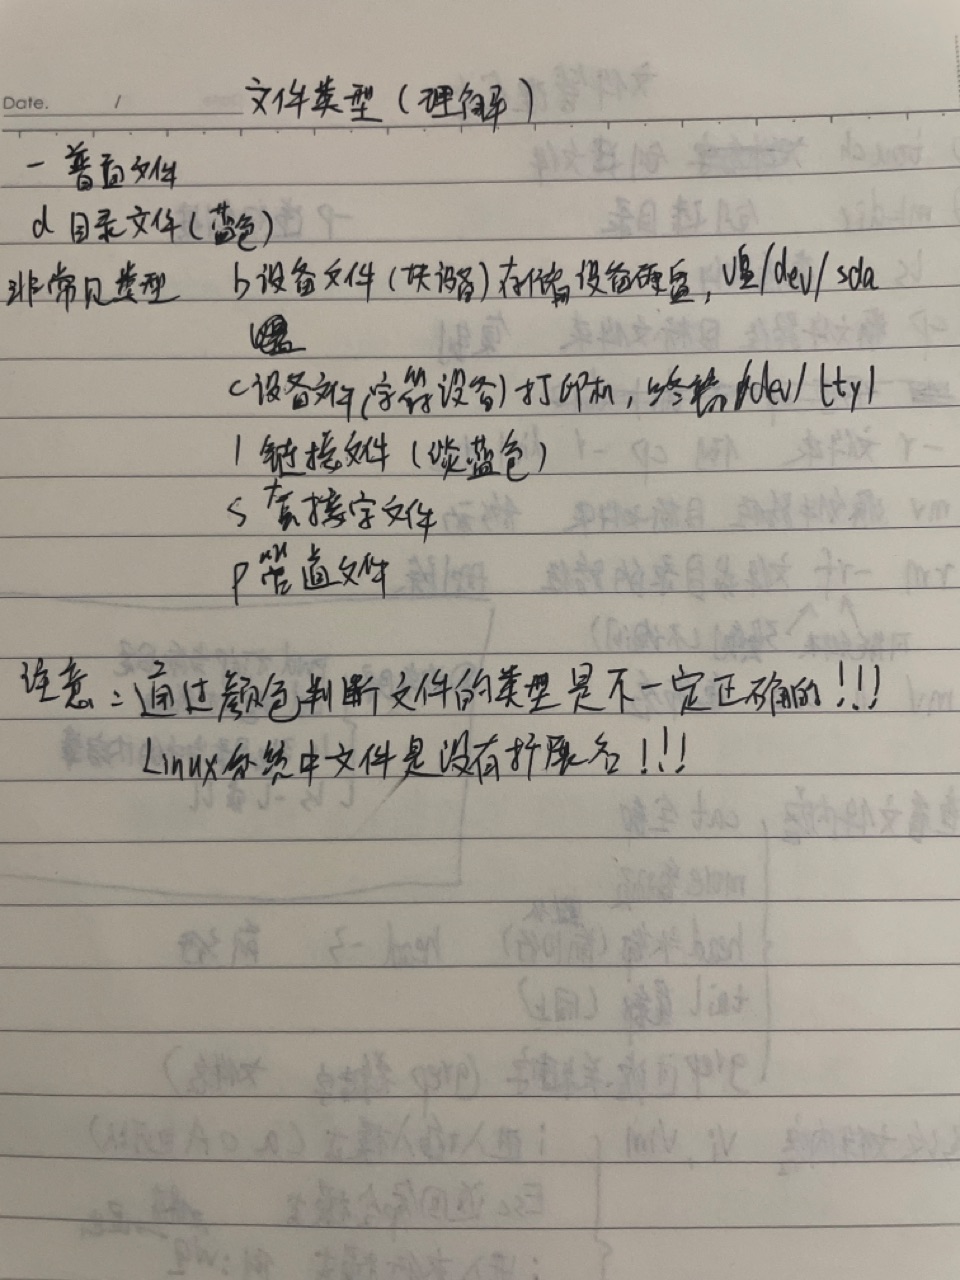 Date. /
文件类型（理解）
- 普通文件
d 目录文件（蓝色）
非常见类型 b设备文件（块设备）存储设备硬盘，U盘/dev/sda
c设备文件（字符设备）打印机，终端/dev/tty1
l 链接文件（淡蓝色）
s 套接字文件
p管道文件
注意：通过颜色判断文件的类型是不一定正确的！！！
Linux系统中文件是没有扩展名！！！